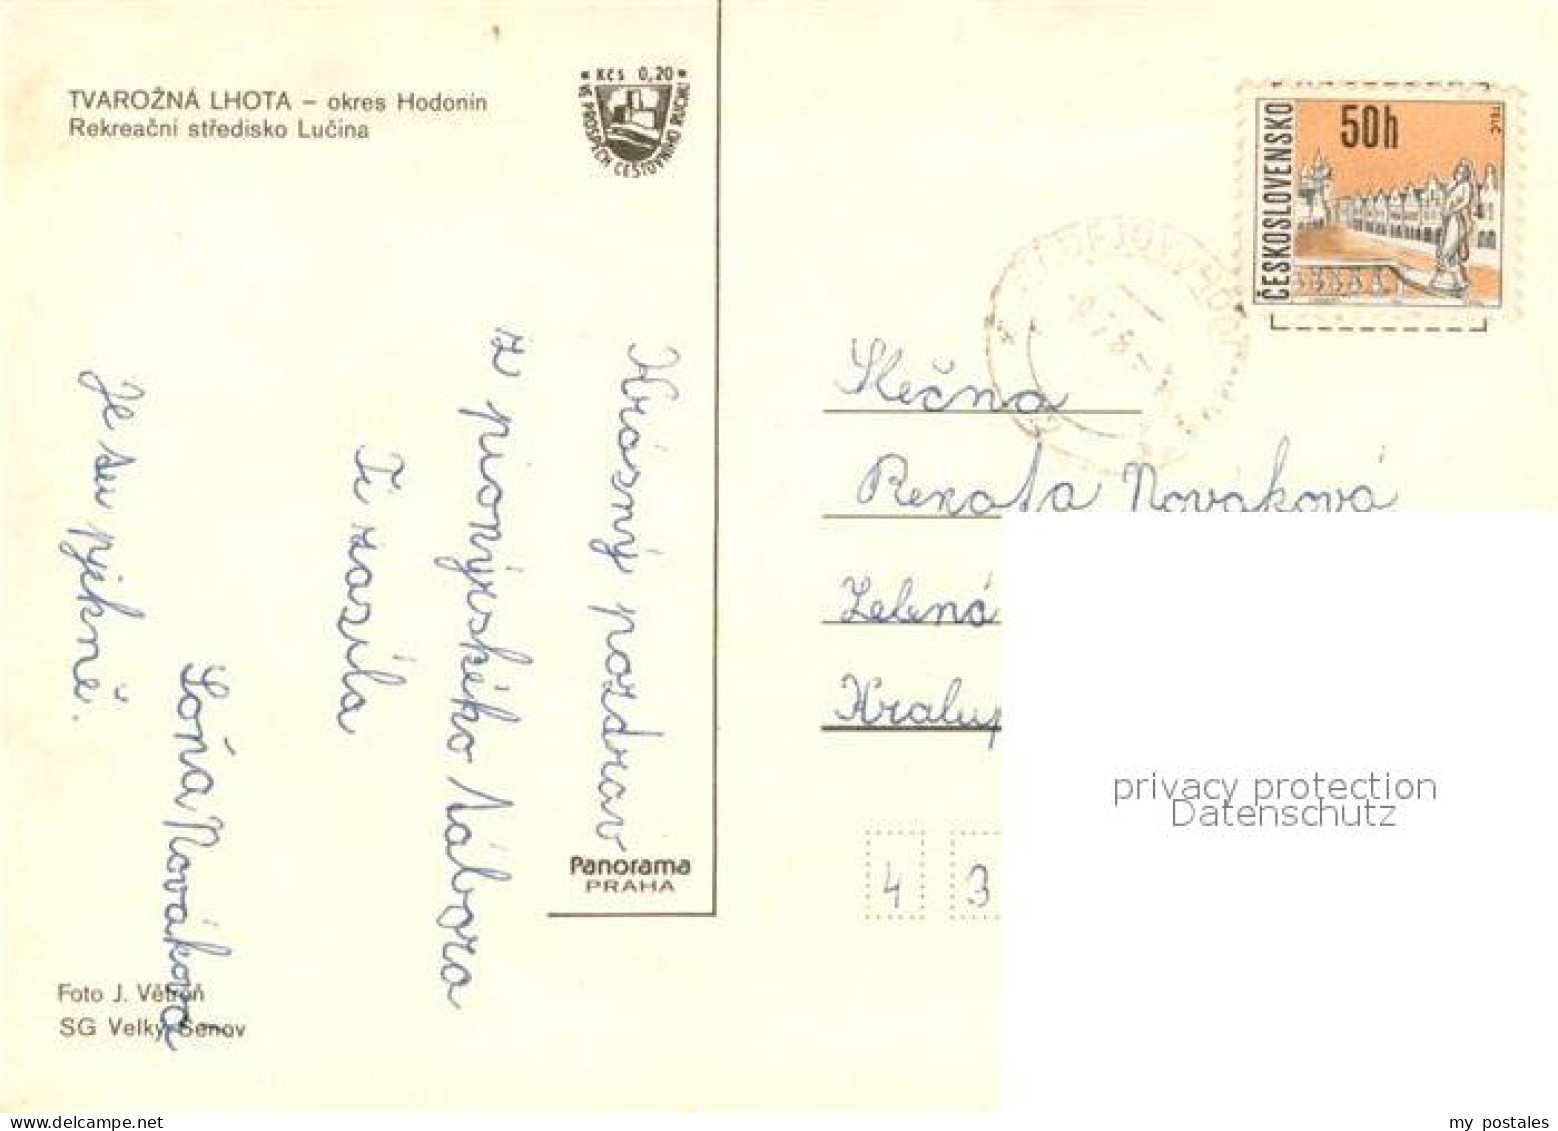 TVAROŽNÁ LHOTA – okres Hodonín
Rekreační středisko Lučina
Kčs 0,20
VE PROSPĚCH CESTOVNÍHO RUCHU
ČESKOSLOVENSKO
50h
TELČ
Krásný pozdrav
z pionýrského tábora
Ti zasíla
Soňa Nováková
Je su pjekně.
Slečna
Renata Nováková
Zelená
Kralup
4 3
Panorama
PRAHA
Foto J. Větroň
SG Velký Šenov
privacy protection
Datenschutz
my postales